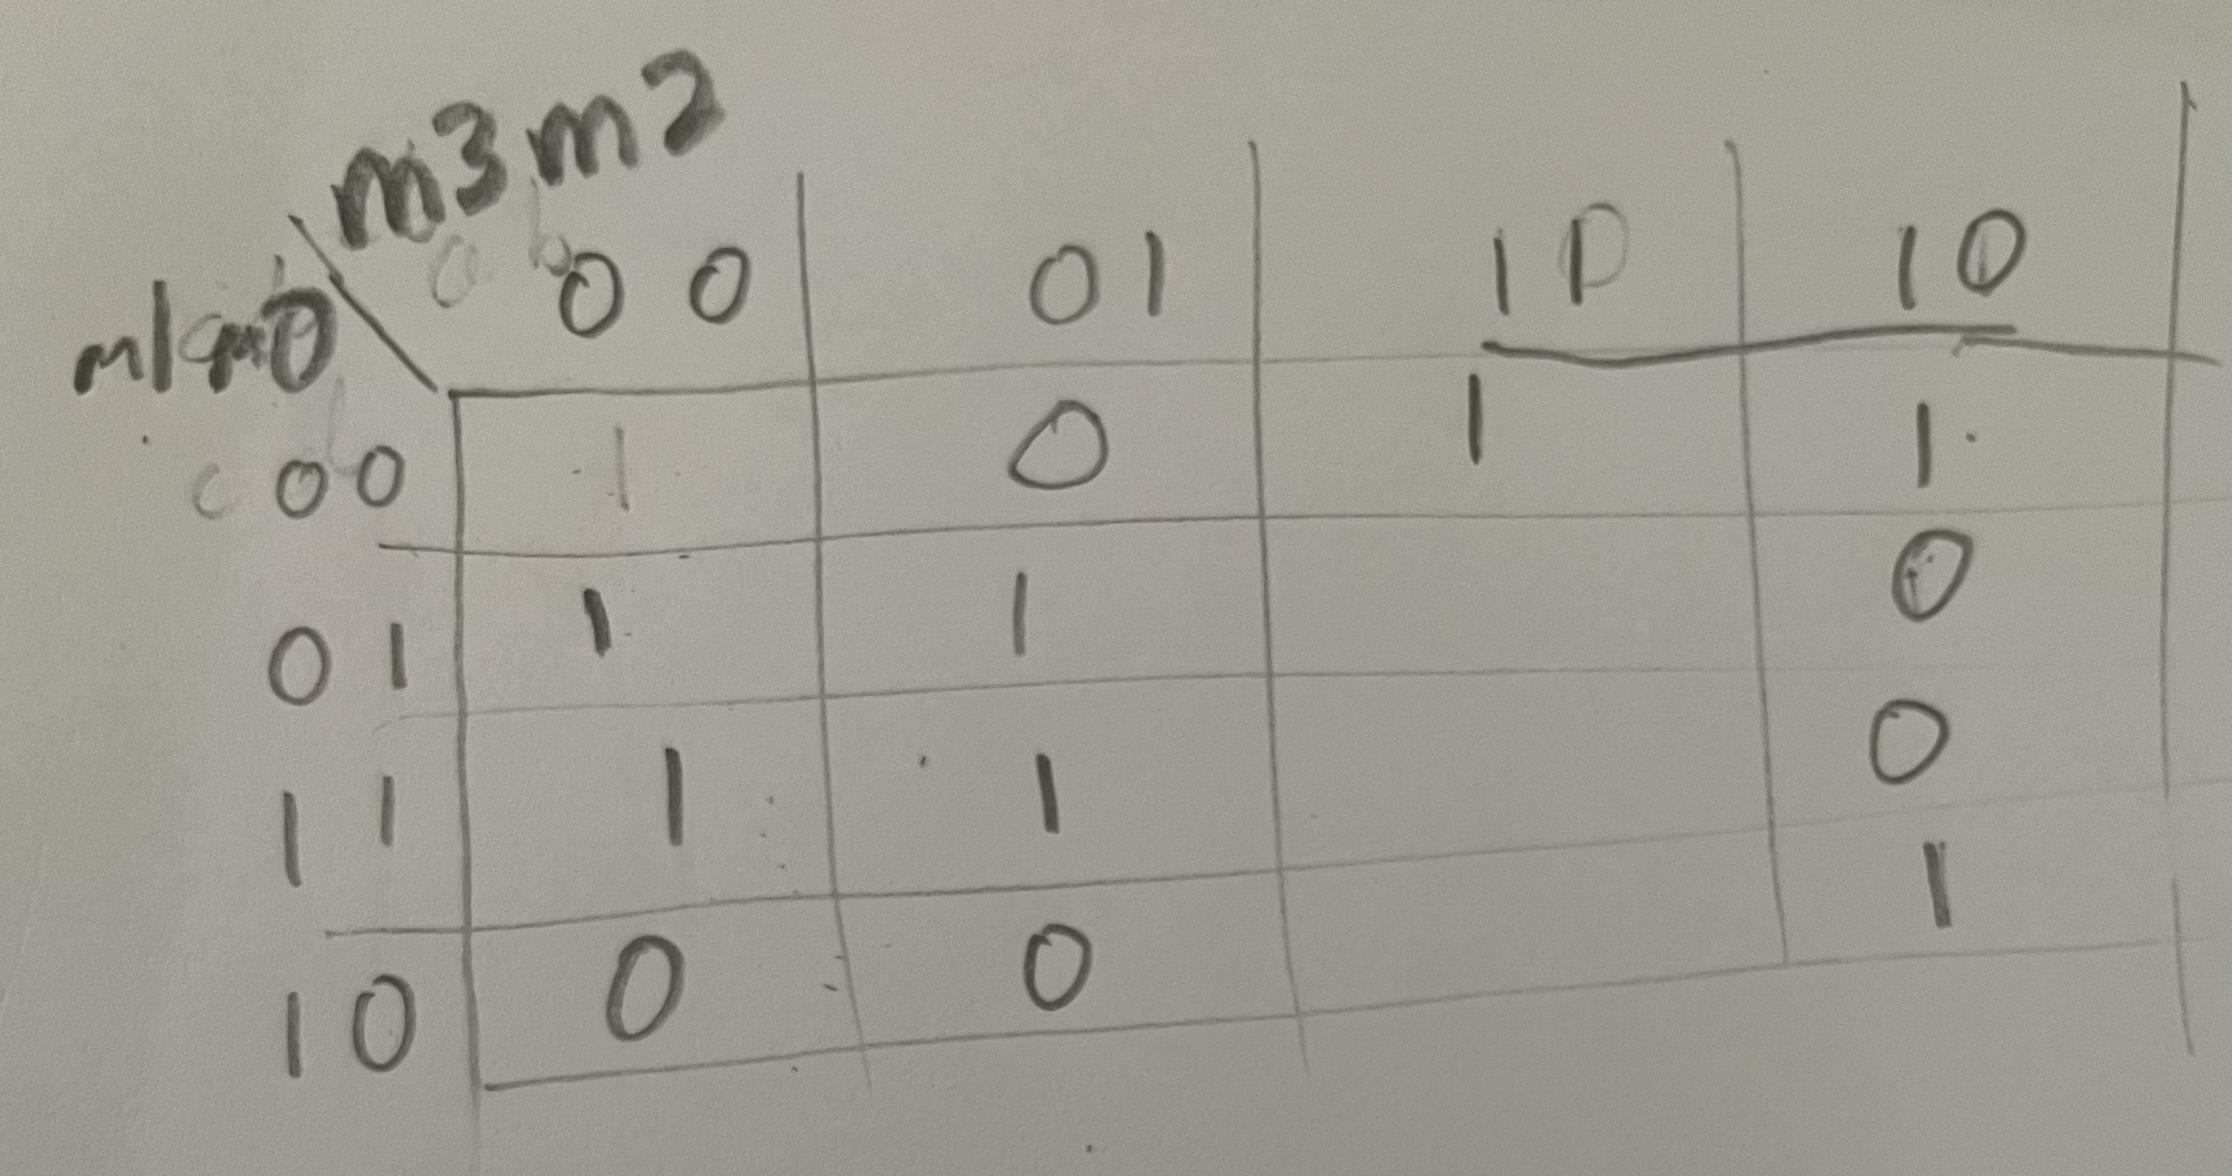 m3m2
m1m0
00 01 11 10
00 1 0 1 1
01 1 1 0
11 1 1 0
10 0 0 1